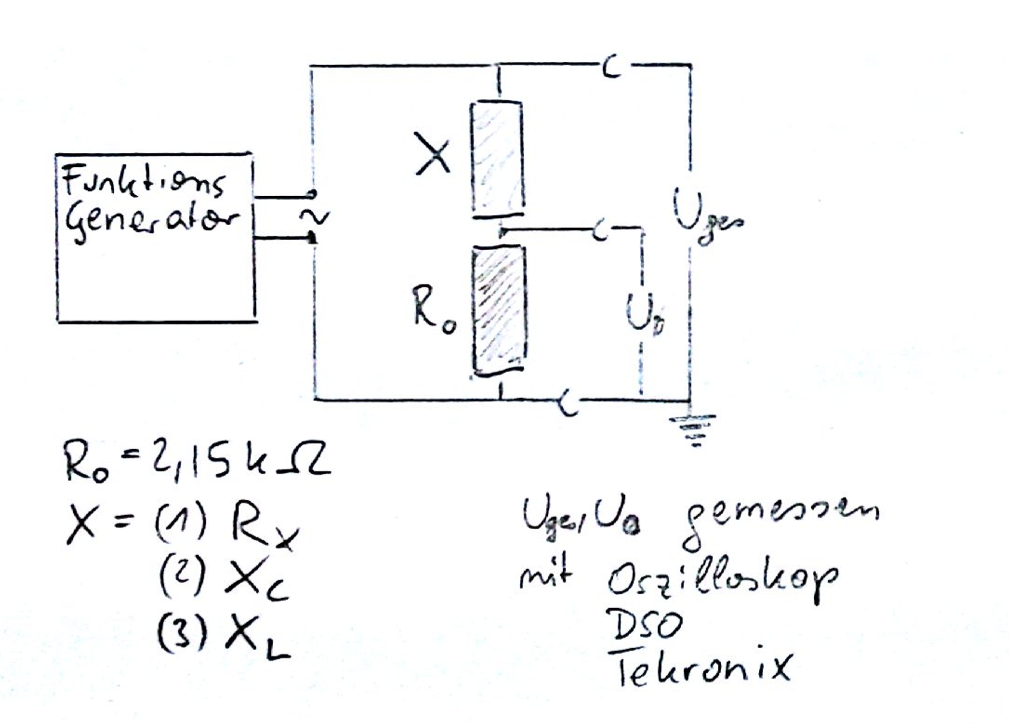 Funktions
Generator
~
X
R₀
U₀
Uges
R₀ = 2,15 kΩ
X = (1) Rₓ
(2) X_C
(3) X_L
Uges, U₀ gemessen
mit Oszilloskop
DSO
Tekronix